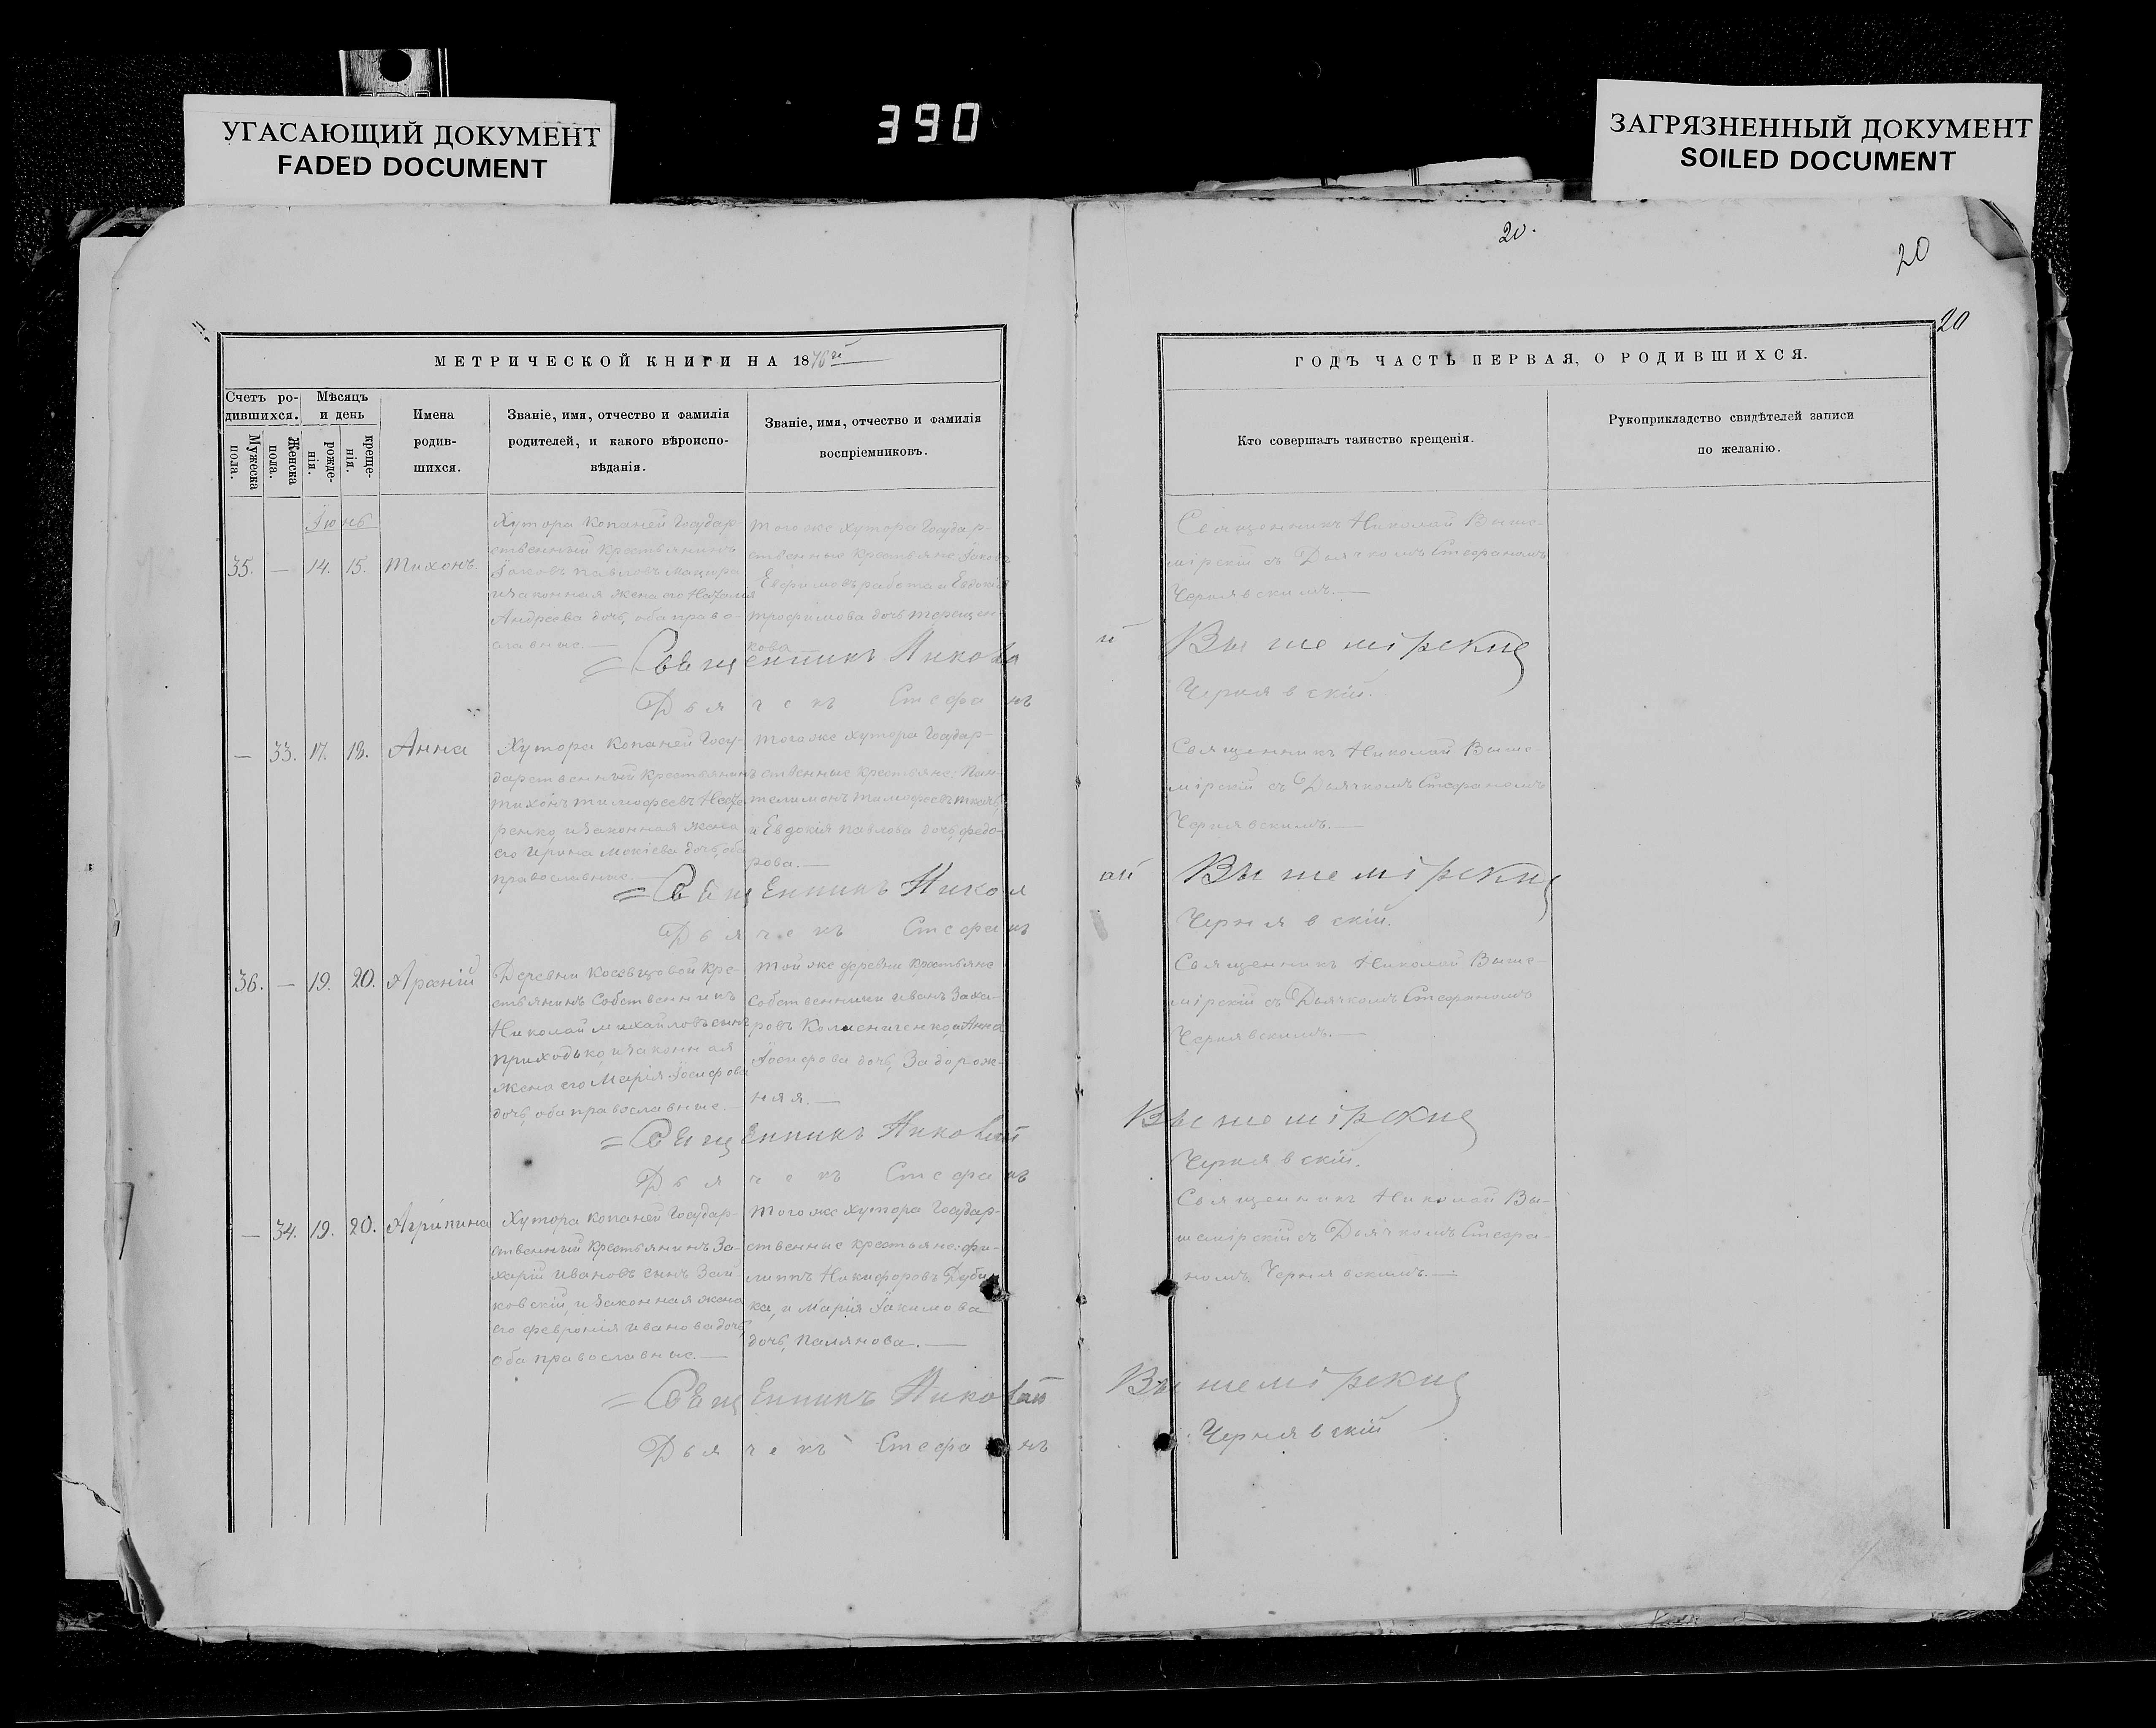 УГАСАЮЩИЙ ДОКУМЕНТ
FADED DOCUMENT
390
ЗАГРЯЗНЕННЫЙ ДОКУМЕНТ
SOILED DOCUMENT
20.
20
20
МЕТРИЧЕСКОЙ КНИГИ НА 1876й
Счетъ ро-
дившихся.
Мужеска
пола.
Женска
пола.
Мѣсяцъ
и день
рожде-
нія.
креще-
нія.
Имена
родив-
шихся.
Званіе, имя, отчество и фамилія
родителей, и какого вѣроиспо-
вѣданія.
Званіе, имя, отчество и фамилія
воспріемниковъ.
ГОДЪ ЧАСТЬ ПЕРВАЯ, О РОДИВШИХСЯ.
Кто совершалъ таинство крещенія.
Рукоприкладство свидѣтелей записи
по желанію.
Іюнь
35. — 14. 15. Тихонъ.
Хутора Копаней Государ-
ственный Крестьянинъ
Іаковъ Павловъ
и законная жена его Наталія
Андреева дочь, оба право-
славные.—
Того же хутора Государ-
ственные Крестьяне Іаковъ
Ефимовъ и Евдокія
Трофимова дочь Терещен-
кова
Священникъ Николай Выше-
мірскій съ Дьячкомъ Стефаномъ
Чернявскимъ.—
=Священникъ Николай Вышемірскій
Дьячекъ Стефанъ Чернявскій.
— 33. 17. 18. Анна
Хутора Копаней Госу-
дарственный Крестьянинъ
Тихонъ Тимофеевъ
и законная жена
его Ирина Мокіева дочь, оба
православные.—
Того же хутора Государ-
ственные крестьяне: Пан-
телимонъ Тимофеевъ Ткачъ,
и Евдокія Павлова дочь, Федо-
рова.—
Священникъ Николай Выше-
мірскій съ Дьячкомъ Стефаномъ
Чернявскимъ.—
=Священникъ Николай Вышемірскій
Дьячекъ Стефанъ Чернявскій.
36. — 19. 20.
Деревни Косевцовой Кре-
стьянинъ Собственникъ
Николай Михайловъ сынъ
Приходько, и законная
жена его Марія Іосифова
дочь, оба православные.—
Той же деревни крестьяне
Собственники Иванъ Заха-
ровъ Колисниченко, и Анна
Іосифова дочь, Задорож-
няя.—
Священникъ Николай Выше-
мірскій съ Дьячкомъ Стефаномъ
Чернявскимъ.—
=Священникъ Николай Вышемірскій
Дьячекъ Стефанъ Чернявскій.
— 34. 19. 20. Агрипина
Хутора Копаней Государ-
ственный Крестьянинъ За-
харій Ивановъ сынъ Зай-
ковскій, и законная жена
его Февронія Иванова дочь,
оба православные.—
Того же хутора Государ-
ственные крестьяне: Фи-
липпъ Никифоровъ
и Марія Іакимова
дочь,
Священникъ Николай Вы-
шемірскій съ Дьячкомъ Стефа-
номъ Чернявскимъ.—
=Священникъ Николай Вышемірскій
Дьячекъ Стефанъ Чернявскій